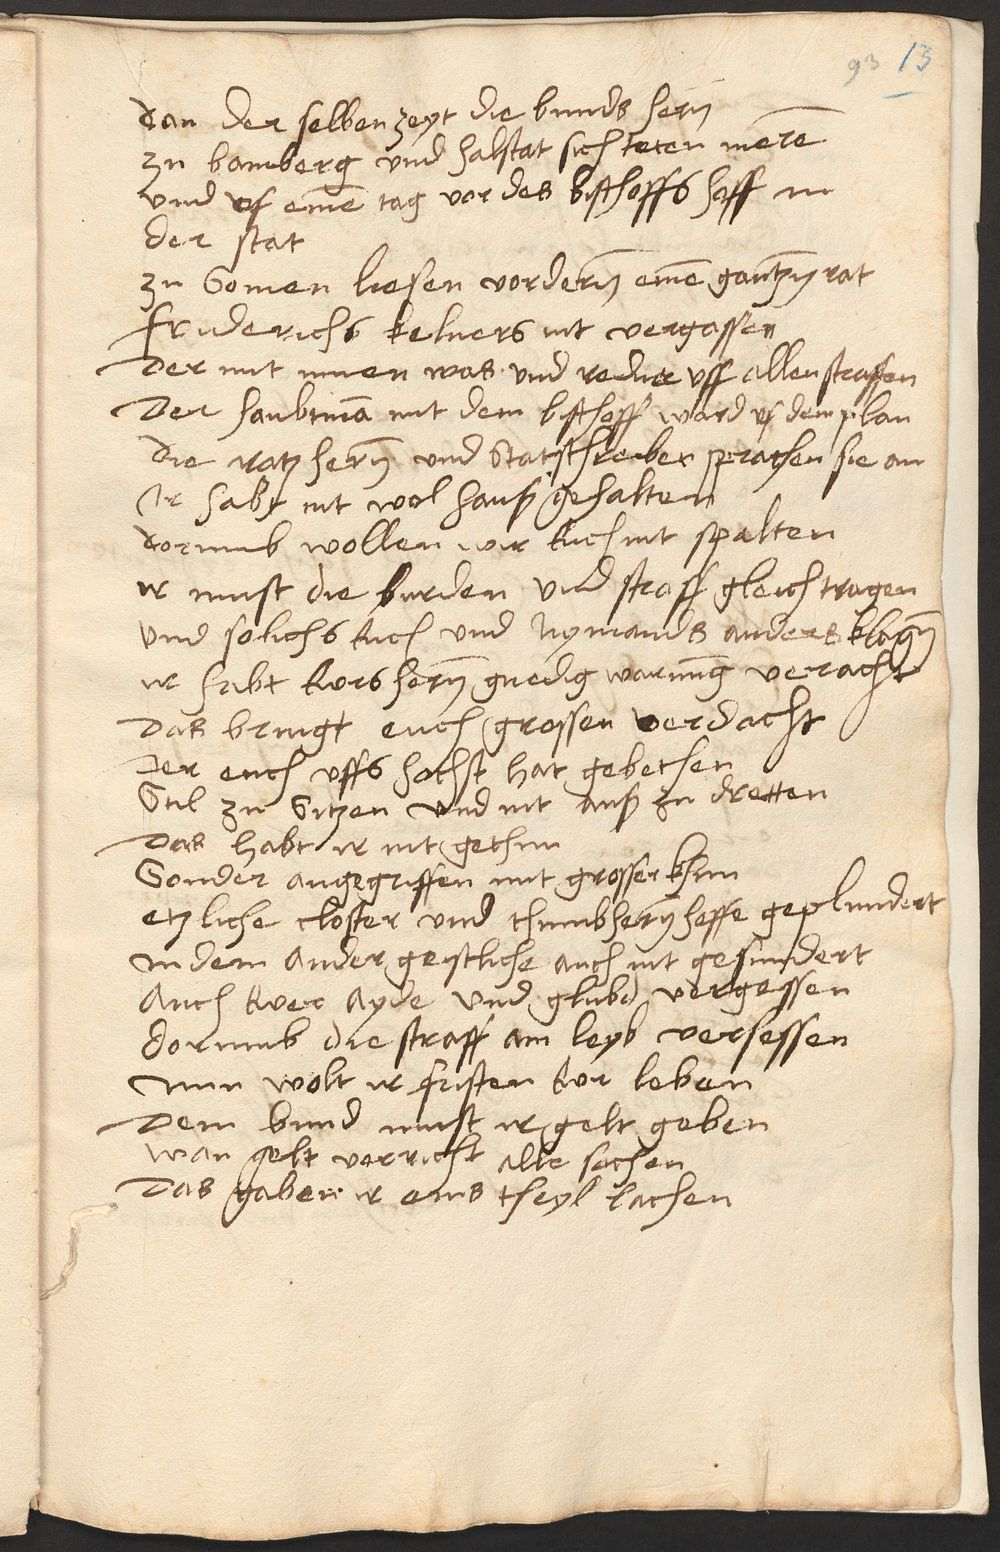 93 13
Dan der selben zeyt die bunds hern̄
zu bamberg und halstat sich teten merē
und uf einē tag vor des bischoffs hoff in
der stat
zu Somen liesen vordern̄ einē gantzn̄ rat
friderichs kelners nit vergassen
Der mit innen was und redite uff allen strassen
Der haubtmā mit dem bischoff ward uf dem plan
die ratz hern̄ und Statschreiber sprachen sie an
Ir habt nit wol hauß gehalten
dorumb wollen wir Euch nit spalten
ir must die burden und straff gleich tragen
und solichs Euch und Nymands anders klagn̄
ir habt Eurs hern̄ gnedig warnūg veracht
Das bringt euch grossen verdacht
Der euch uffs hochst hat gebethen
Stil zu Sitzen und nit auß zu dretten
Das habt ir nit gethun
Sonder angegriffen mit grosser khun
etzliche closter und thumbhern̄ hoffe geplundert
in dem Ander geystliche auch nit gesundert
Auch Euer Ayde und glubd vergessen
dorumb die straff am leyb versessen
nun wolt ir fristen Eur leben
Dem bund must ir gelt geben
wan gelt verricht alle sachen
Das gaben ir eins theyl lachen